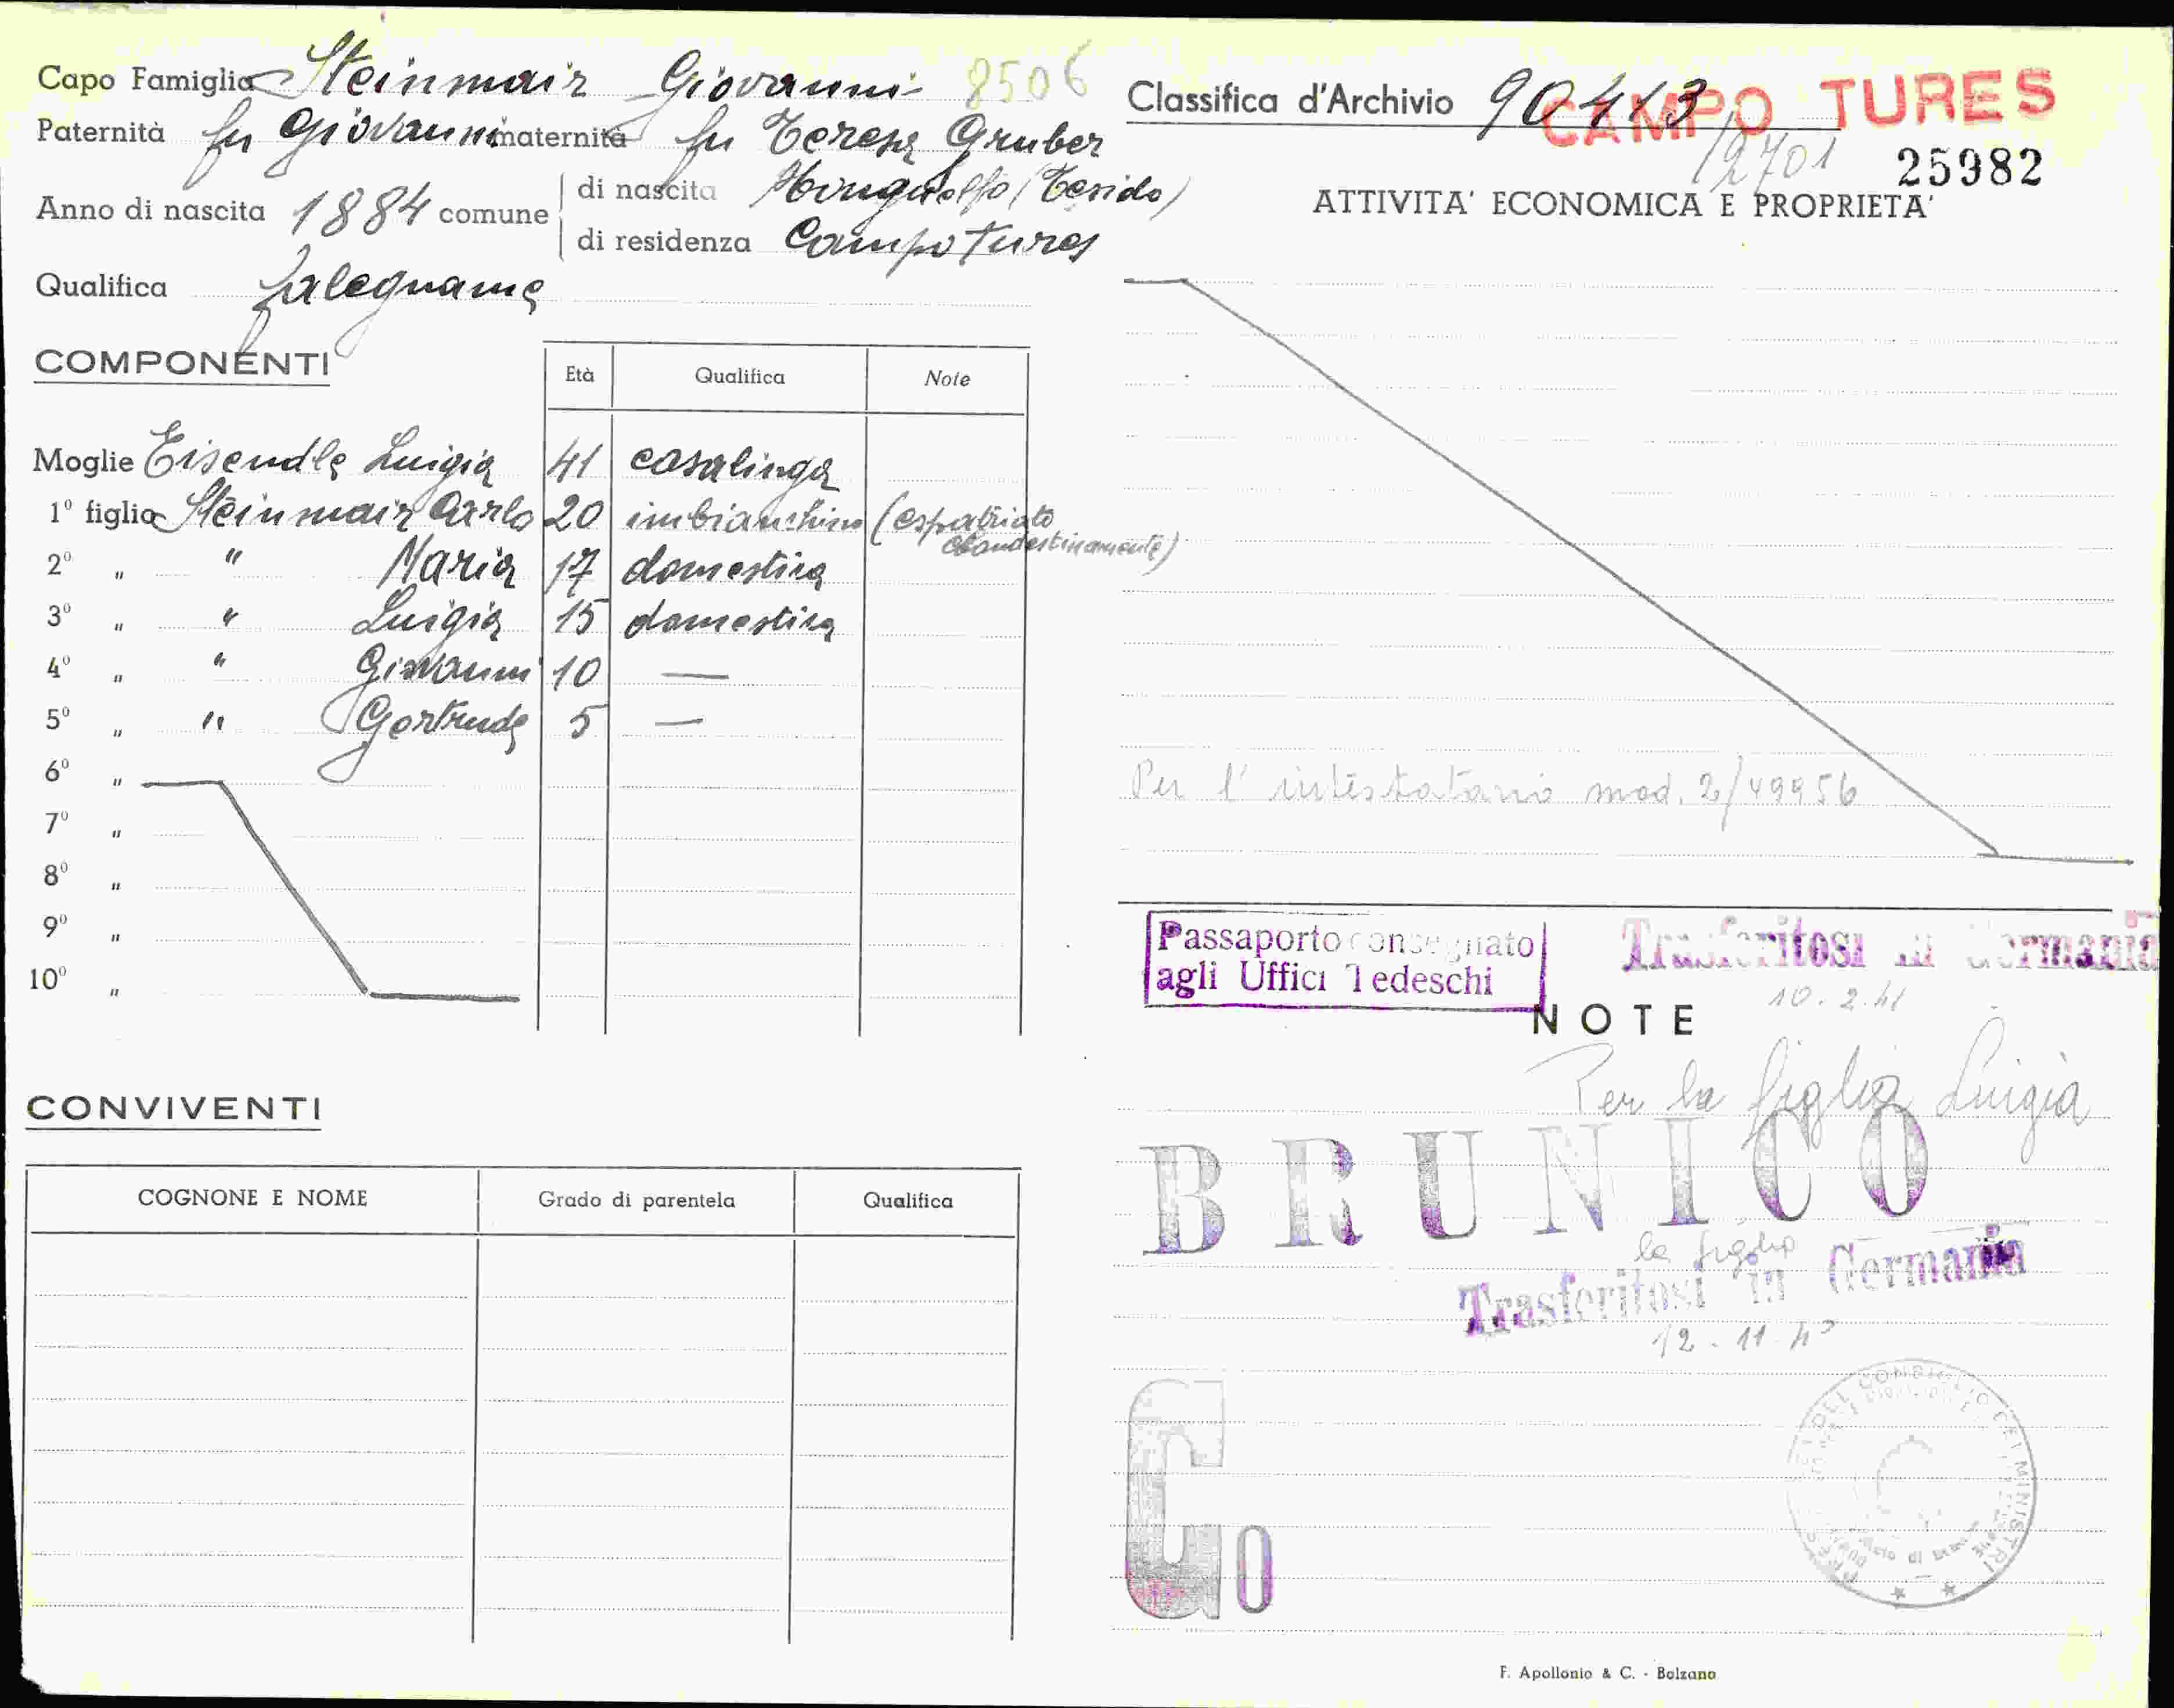 Capo Famiglia Steinmair Giovanni 8506
Paternità fu Giovanni maternità fu Teresa Gruber
Anno di nascita 1884 comune
di nascita Monguelfo (Tesido)
di residenza Campo Tures
Qualifica falegname
COMPONENTI
Età Qualifica Note
Moglie Eisendle Luigia 41 casalinga
1º figlio Steinmair Carlo 20 imbianchino (espatriato
clandestinamente)
2º " " Maria 17 domestica
3º " " Luigia 15 domestica
4º " " Giovanni 10 —
5º " " Gertrude 5 —
6º "
7º "
8º "
9º "
10º "
CONVIVENTI
COGNONE E NOME Grado di parentela Qualifica
Classifica d'Archivio 90413
CAMPO TURES
12701 25982
ATTIVITA' ECONOMICA E PROPRIETA'
Per l'intestatario mod. 2/49956
Passaporto consegnato
agli Uffici Tedeschi
Trasferitosi in Germania
10.2.41
NOTE
Per la figlia Luigia
BRUNICO
la figlia
Trasferitosi in Germania
12-11-40
G0
F. Apollonio & C. - Bolzano